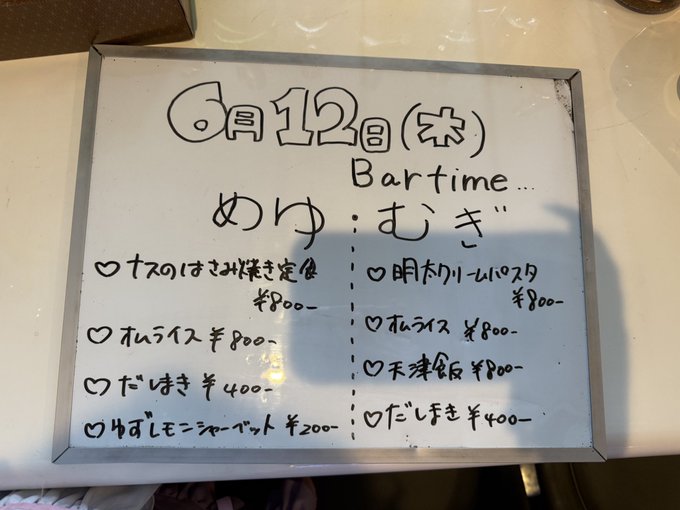 6月12日(木)
Bartime...
めゆ:むぎ
♡ナスのはさみ焼き定食
¥800-
♡オムライス ¥800-
♡だしまき ¥400-
♡ゆずレモンシャーベット ¥200-
♡明太クリームパスタ
¥800-
♡オムライス ¥800-
♡天津飯 ¥800-
♡だしまき ¥400-